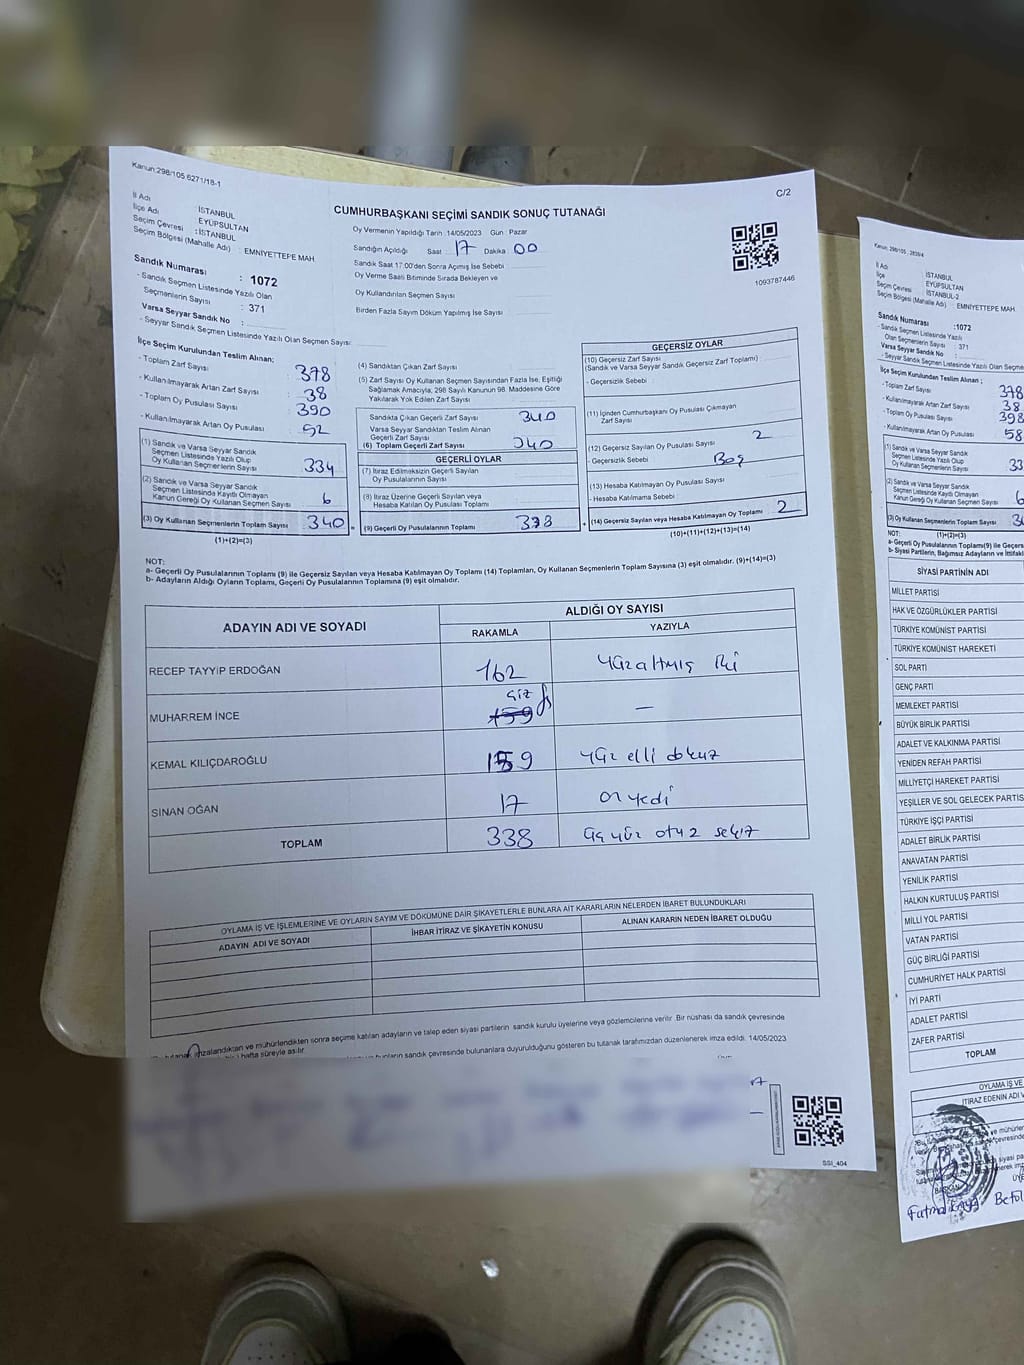 Kanun:298/105,6271/18-1
C/2
CUMHURBAŞKANI SEÇİMİ SANDIK SONUÇ TUTANAĞI
İl Adı İSTANBUL
İlçe Adı EYÜPSULTAN
Seçim Çevresi : İSTANBUL
Seçim Bölgesi (Mahalle Adı) : EMNİYETTEPE MAH
Sandık Numarası : 1072
- Sandık Seçmen Listesinde Yazılı Olan
Seçmenlerin Sayısı : 371
Varsa Seyyar Sandık No :
- Seyyar Sandık Seçmen Listesinde Yazılı Olan Seçmen Sayısı:
Oy Vermenin Yapıldığı Tarih : 14/05/2023 Gün : Pazar
Sandığın Açıldığı Saat 17 Dakika 00
Sandık Saat 17:00'den Sonra Açımış İse Sebebi
Oy Verme Saati Bitiminde Sırada Bekleyen ve
Oy Kullandırılan Seçmen Sayısı
Birden Fazla Sayım Döküm Yapılmış İse Sayısı
1093787446
İlçe Seçim Kurulundan Teslim Alınan;
- Toplam Zarf Sayısı : 378
- Kullanılmayarak Artan Zarf Sayısı : 38
- Toplam Oy Pusulası Sayısı : 390
- Kullanılmayarak Artan Oy Pusulası : 52
(1) Sandık ve Varsa Seyyar Sandık
Seçmen Listesinde Yazılı Olup
Oy Kullanan Seçmenlerin Sayısı 334
(2) Sandık ve Varsa Seyyar Sandık
Seçmen Listesinde Kayıtlı Olmayan
Kanun Gereği Oy Kullanan Seçmen Sayısı 6
(3) Oy Kullanan Seçmenlerin Toplam Sayısı 340
(1)+(2)=(3)
(4) Sandıktan Çıkan Zarf Sayısı
(5) Zarf Sayısı Oy Kullanan Seçmen Sayısından Fazla İse, Eşitliği
Sağlamak Amacıyla; 298 Sayılı Kanunun 98. Maddesine Göre
Yakılarak Yok Edilen Zarf Sayısı
Sandıkta Çıkan Geçerli Zarf Sayısı 340
Varsa Seyyar Sandıktan Teslim Alınan
Geçerli Zarf Sayısı
(6) Toplam Geçerli Zarf Sayısı 340
GEÇERLİ OYLAR
(7) İtiraz Edilmeksizin Geçerli Sayılan
Oy Pusulalarının Sayısı
(8) İtiraz Üzerine Geçerli Sayılan veya
Hesaba Katılan Oy Pusulası Toplamı
(9) Geçerli Oy Pusulalarının Toplamı 338
GEÇERSİZ OYLAR
(10) Geçersiz Zarf Sayısı
(Sandık ve Varsa Seyyar Sandık Geçersiz Zarf Toplamı)
- Geçersizlik Sebebi :
(11) İçinden Cumhurbaşkanı Oy Pusulası Çıkmayan
Zarf Sayısı
(12) Geçersiz Sayılan Oy Pusulası Sayısı 2
- Geçersizlik Sebebi : Boş
(13) Hesaba Katılmayan Oy Pusulası Sayısı
- Hesaba Katılmama Sebebi :
(14) Geçersiz Sayılan veya Hesaba Katılmayan Oy Toplamı 2
(10)+(11)+(12)+(13)=(14)
NOT:
a- Geçerli Oy Pusulalarının Toplamı (9) ile Geçersiz Sayılan veya Hesaba Katılmayan Oy Toplamı (14) Toplamları, Oy Kullanan Seçmenlerin Toplam Sayısına (3) eşit olmalıdır. (9)+(14)=(3)
b- Adayların Aldığı Oyların Toplamı, Geçerli Oy Pusulalarının Toplamına (9) eşit olmalıdır.
ADAYIN ADI VE SOYADI ALDIĞI OY SAYISI
RAKAMLA YAZIYLA
RECEP TAYYİP ERDOĞAN 162 Yüzaltmış iki
MUHARREM İNCE 159 —
KEMAL KILIÇDAROĞLU 159 yüz elli dokuz
SİNAN OĞAN 17 on yedi
TOPLAM 338 üç yüz otuz sekiz
OYLAMA İŞ VE İŞLEMLERİNE VE OYLARIN SAYIM VE DÖKÜMÜNE DAİR ŞİKAYETLERLE BUNLARA AİT KARARLARIN NELERDEN İBARET BULUNDUKLARI
ADAYIN ADI VE SOYADI İHBAR İTİRAZ VE ŞİKAYETİN KONUSU ALINAN KARARIN NEDEN İBARET OLDUĞU
imzalandıktan ve mühürlendikten sonra seçime katılan adayların ve talep eden siyasi partilerin sandık kurulu üyelerine veya gözlemcilerine verilir. Bir nüshası da sandık çevresinde
hafta süreyle asılır.
sandık çevresinde bulunanlara duyurulduğunu gösteren bu tutanak tarafımızdan düzenlenerek imza edildi. 14/05/2023
SSI_404
İl Adı : İSTANBUL
İlçe : EYÜPSULTAN
Seçim Çevresi : İSTANBUL-2
Seçim Bölgesi (Mahalle Adı) : EMNİYETTEPE MAH
Sandık Numarası :1072
- Sandık Seçmen Listesinde Yazılı
Olan Seçmenlerin Sayısı : 371
Varsa Seyyar Sandık No
- Seyyar Sandık Seçmen Listesinde Yazılı Olan Seçme
İlçe Seçim Kurulundan Teslim Alınan ;
- Toplam Zarf Sayısı : 378
- Kullanılmayarak Artan Zarf Sayısı : 38
- Toplam Oy Pusulası Sayısı : 398
- Kullanılmayarak Artan Oy Pusulası : 58
(1) Sandık ve Varsa Seyyar Sandık
Seçmen Listesinde Yazılı Olup
Oy Kullanan Seçmenlerin Sayısı 33
(2) Sandık ve Varsa Seyyar Sandık
Seçmen Listesinde Kayıtlı Olmayan
Kanun Gereği Oy Kullanan Seçmen Sayısı 6
(3) Oy Kullanan Seçmenlerin Toplam Sayısı
(1)+(2)=(3)
NOT:
a- Geçerli Oy Pusulalarının Toplamı(9) ile Geçers
b- Siyasi Partilerin, Bağımsız Adayların ve İttifakl
SİYASİ PARTİNİN ADI
MİLLET PARTİSİ
HAK VE ÖZGÜRLÜKLER PARTİSİ
TÜRKİYE KOMÜNİST PARTİSİ
TÜRKİYE KOMÜNİST HAREKETİ
SOL PARTİ
GENÇ PARTİ
MEMLEKET PARTİSİ
BÜYÜK BİRLİK PARTİSİ
ADALET VE KALKINMA PARTİSİ
YENİDEN REFAH PARTİSİ
MİLLİYETÇİ HAREKET PARTİSİ
YEŞİLLER VE SOL GELECEK PARTİS
TÜRKİYE İŞÇİ PARTİSİ
ADALET BİRLİK PARTİSİ
ANAVATAN PARTİSİ
YENİLİK PARTİSİ
HALKIN KURTULUŞ PARTİSİ
MİLLİ YOL PARTİSİ
VATAN PARTİSİ
GÜÇ BİRLİĞİ PARTİSİ
CUMHURİYET HALK PARTİSİ
İYİ PARTİ
ADALET PARTİSİ
ZAFER PARTİSİ
TOPLAM
OYLAMA İŞ VE
İTİRAZ EDENİN ADI V
BAŞKAN
Fatma Betül